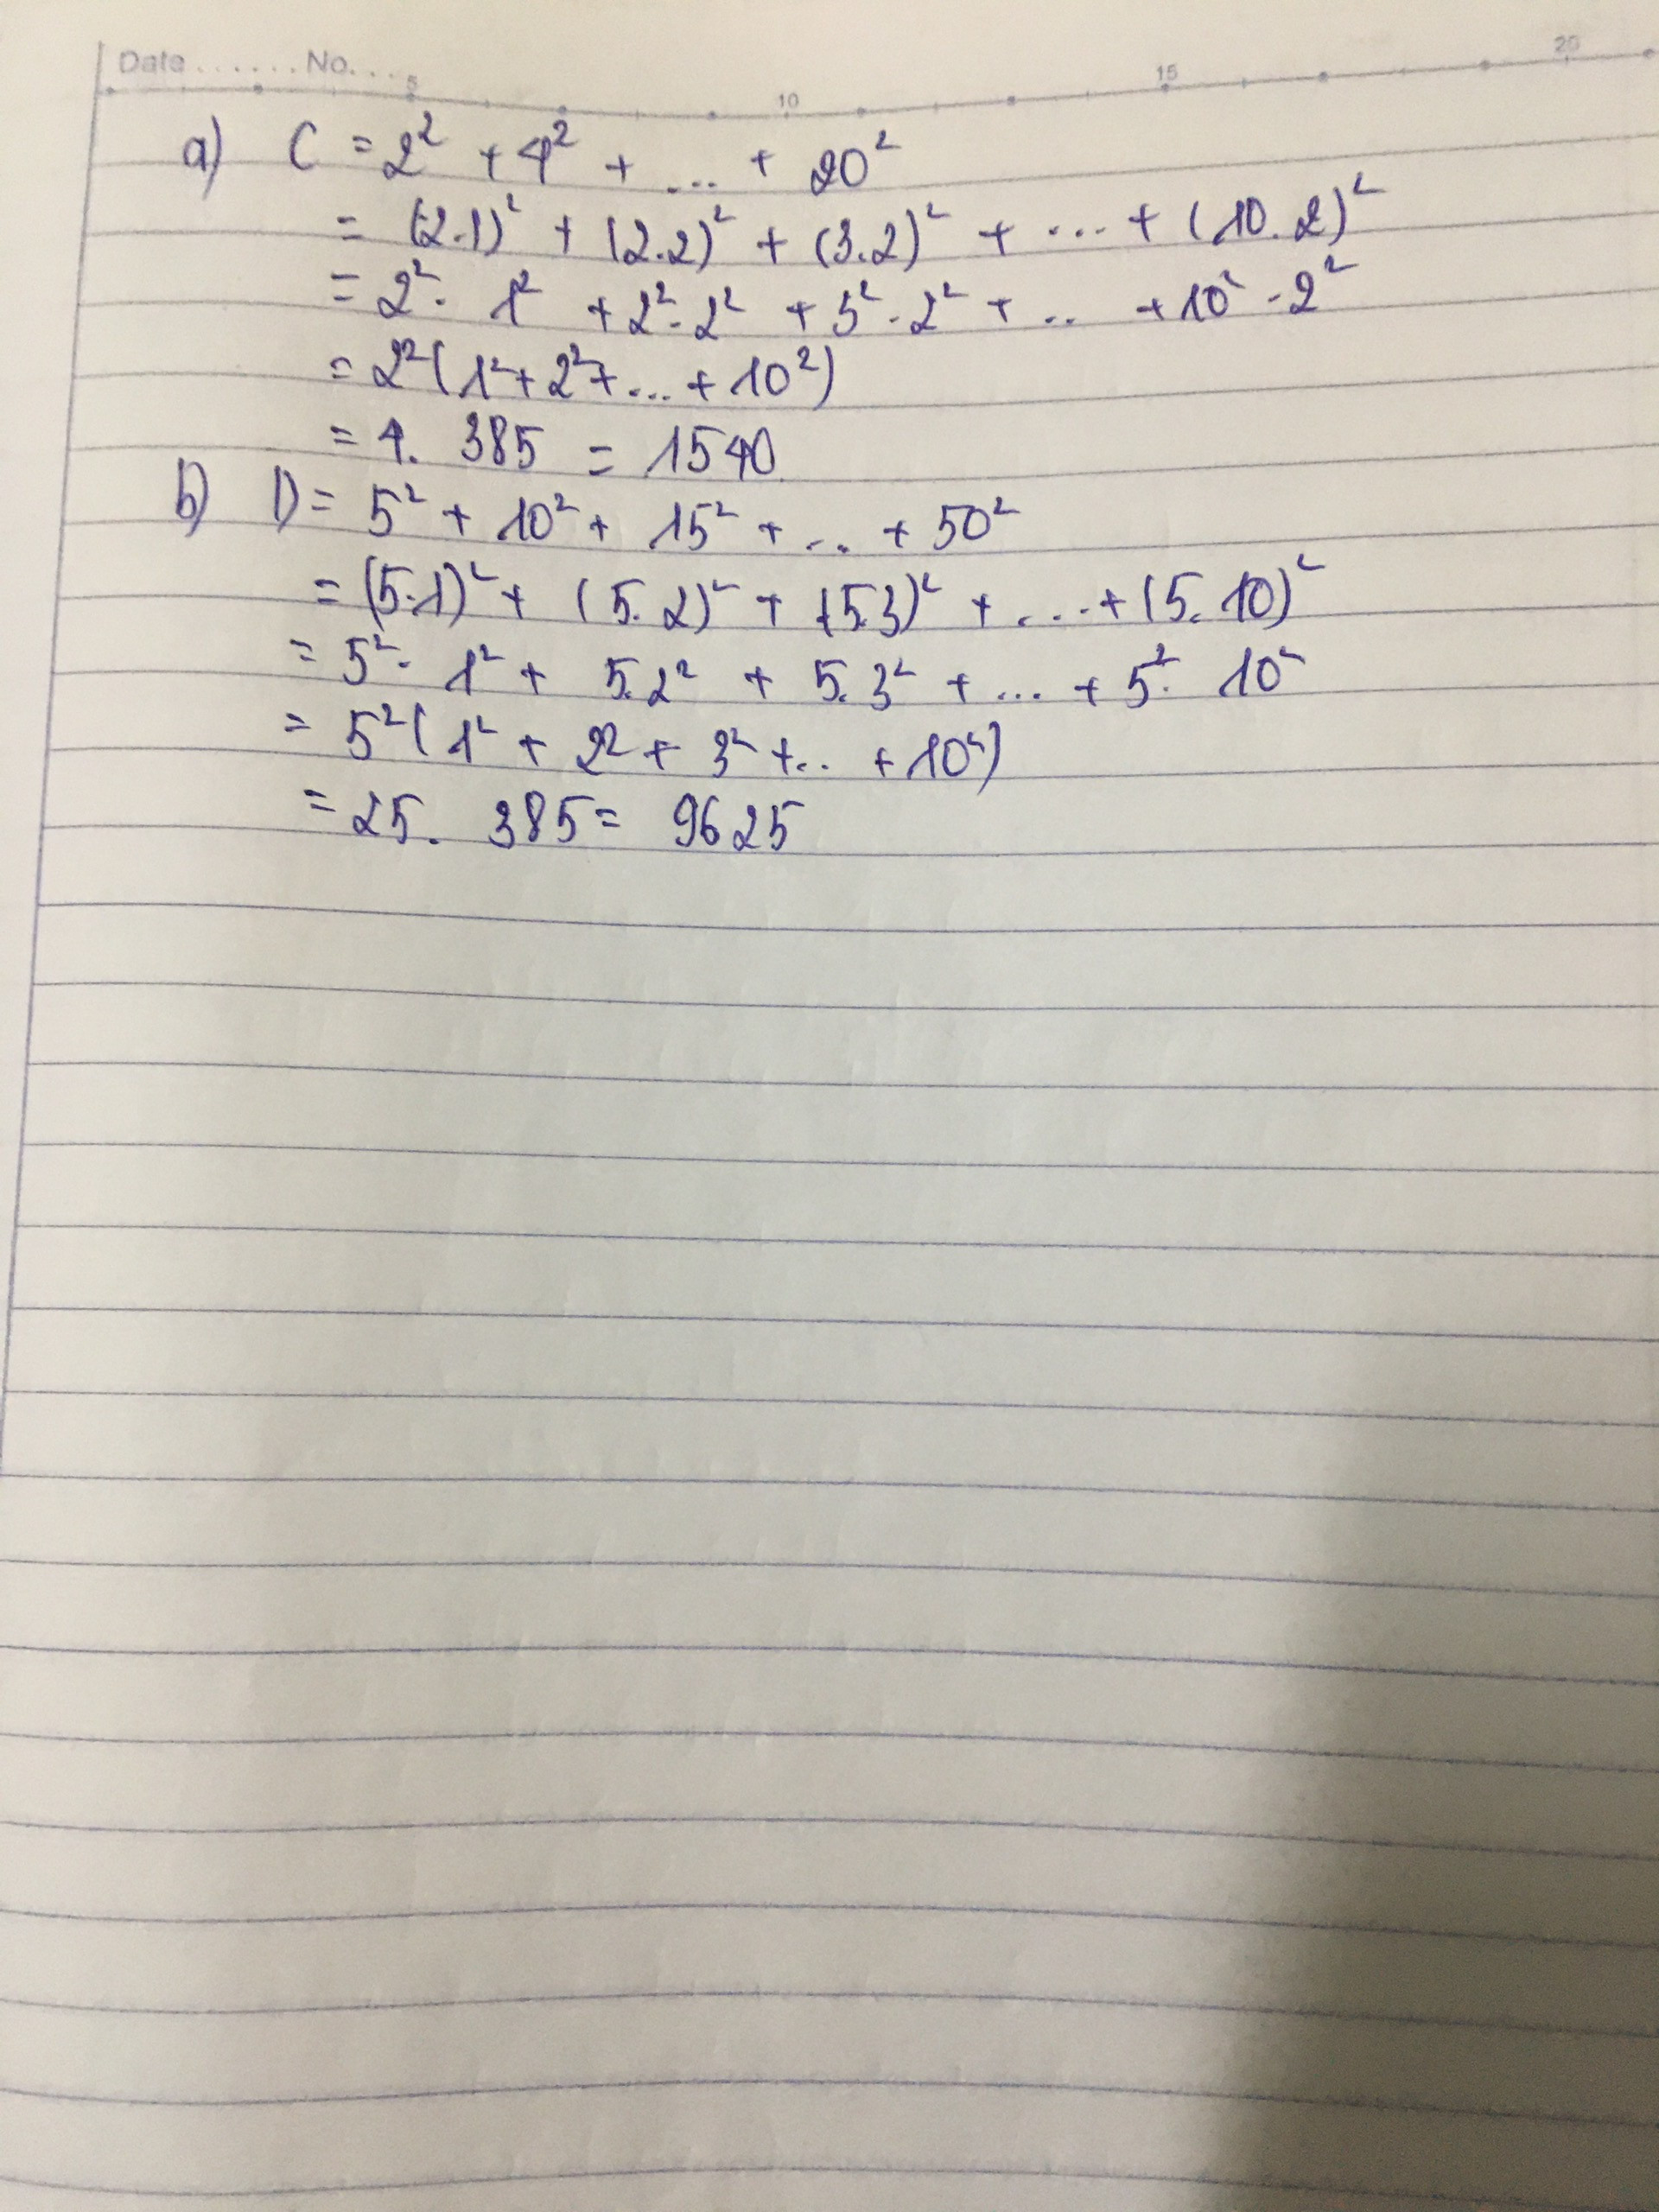 Date ...... No. ...
5 10 15 20
a) C = 2² + 4² + ... + 20²
= (2.1)² + (2.2)² + (3.2)² + ... + (10.2)²
= 2². 1² + 2².2² + 3².2² + .. + 10².2²
= 2²(1²+2²+...+10²)
= 4. 385 = 1540
b) D = 5² + 10² + 15² + ... + 50²
= (5.1)² + (5.2)² + (5.3)² + ... + (5.10)²
= 5². 1² + 5.2² + 5.3² + ... + 5². 10²
= 5²(1² + 2² + 3² +.. + 10²)
= 25. 385 = 9625